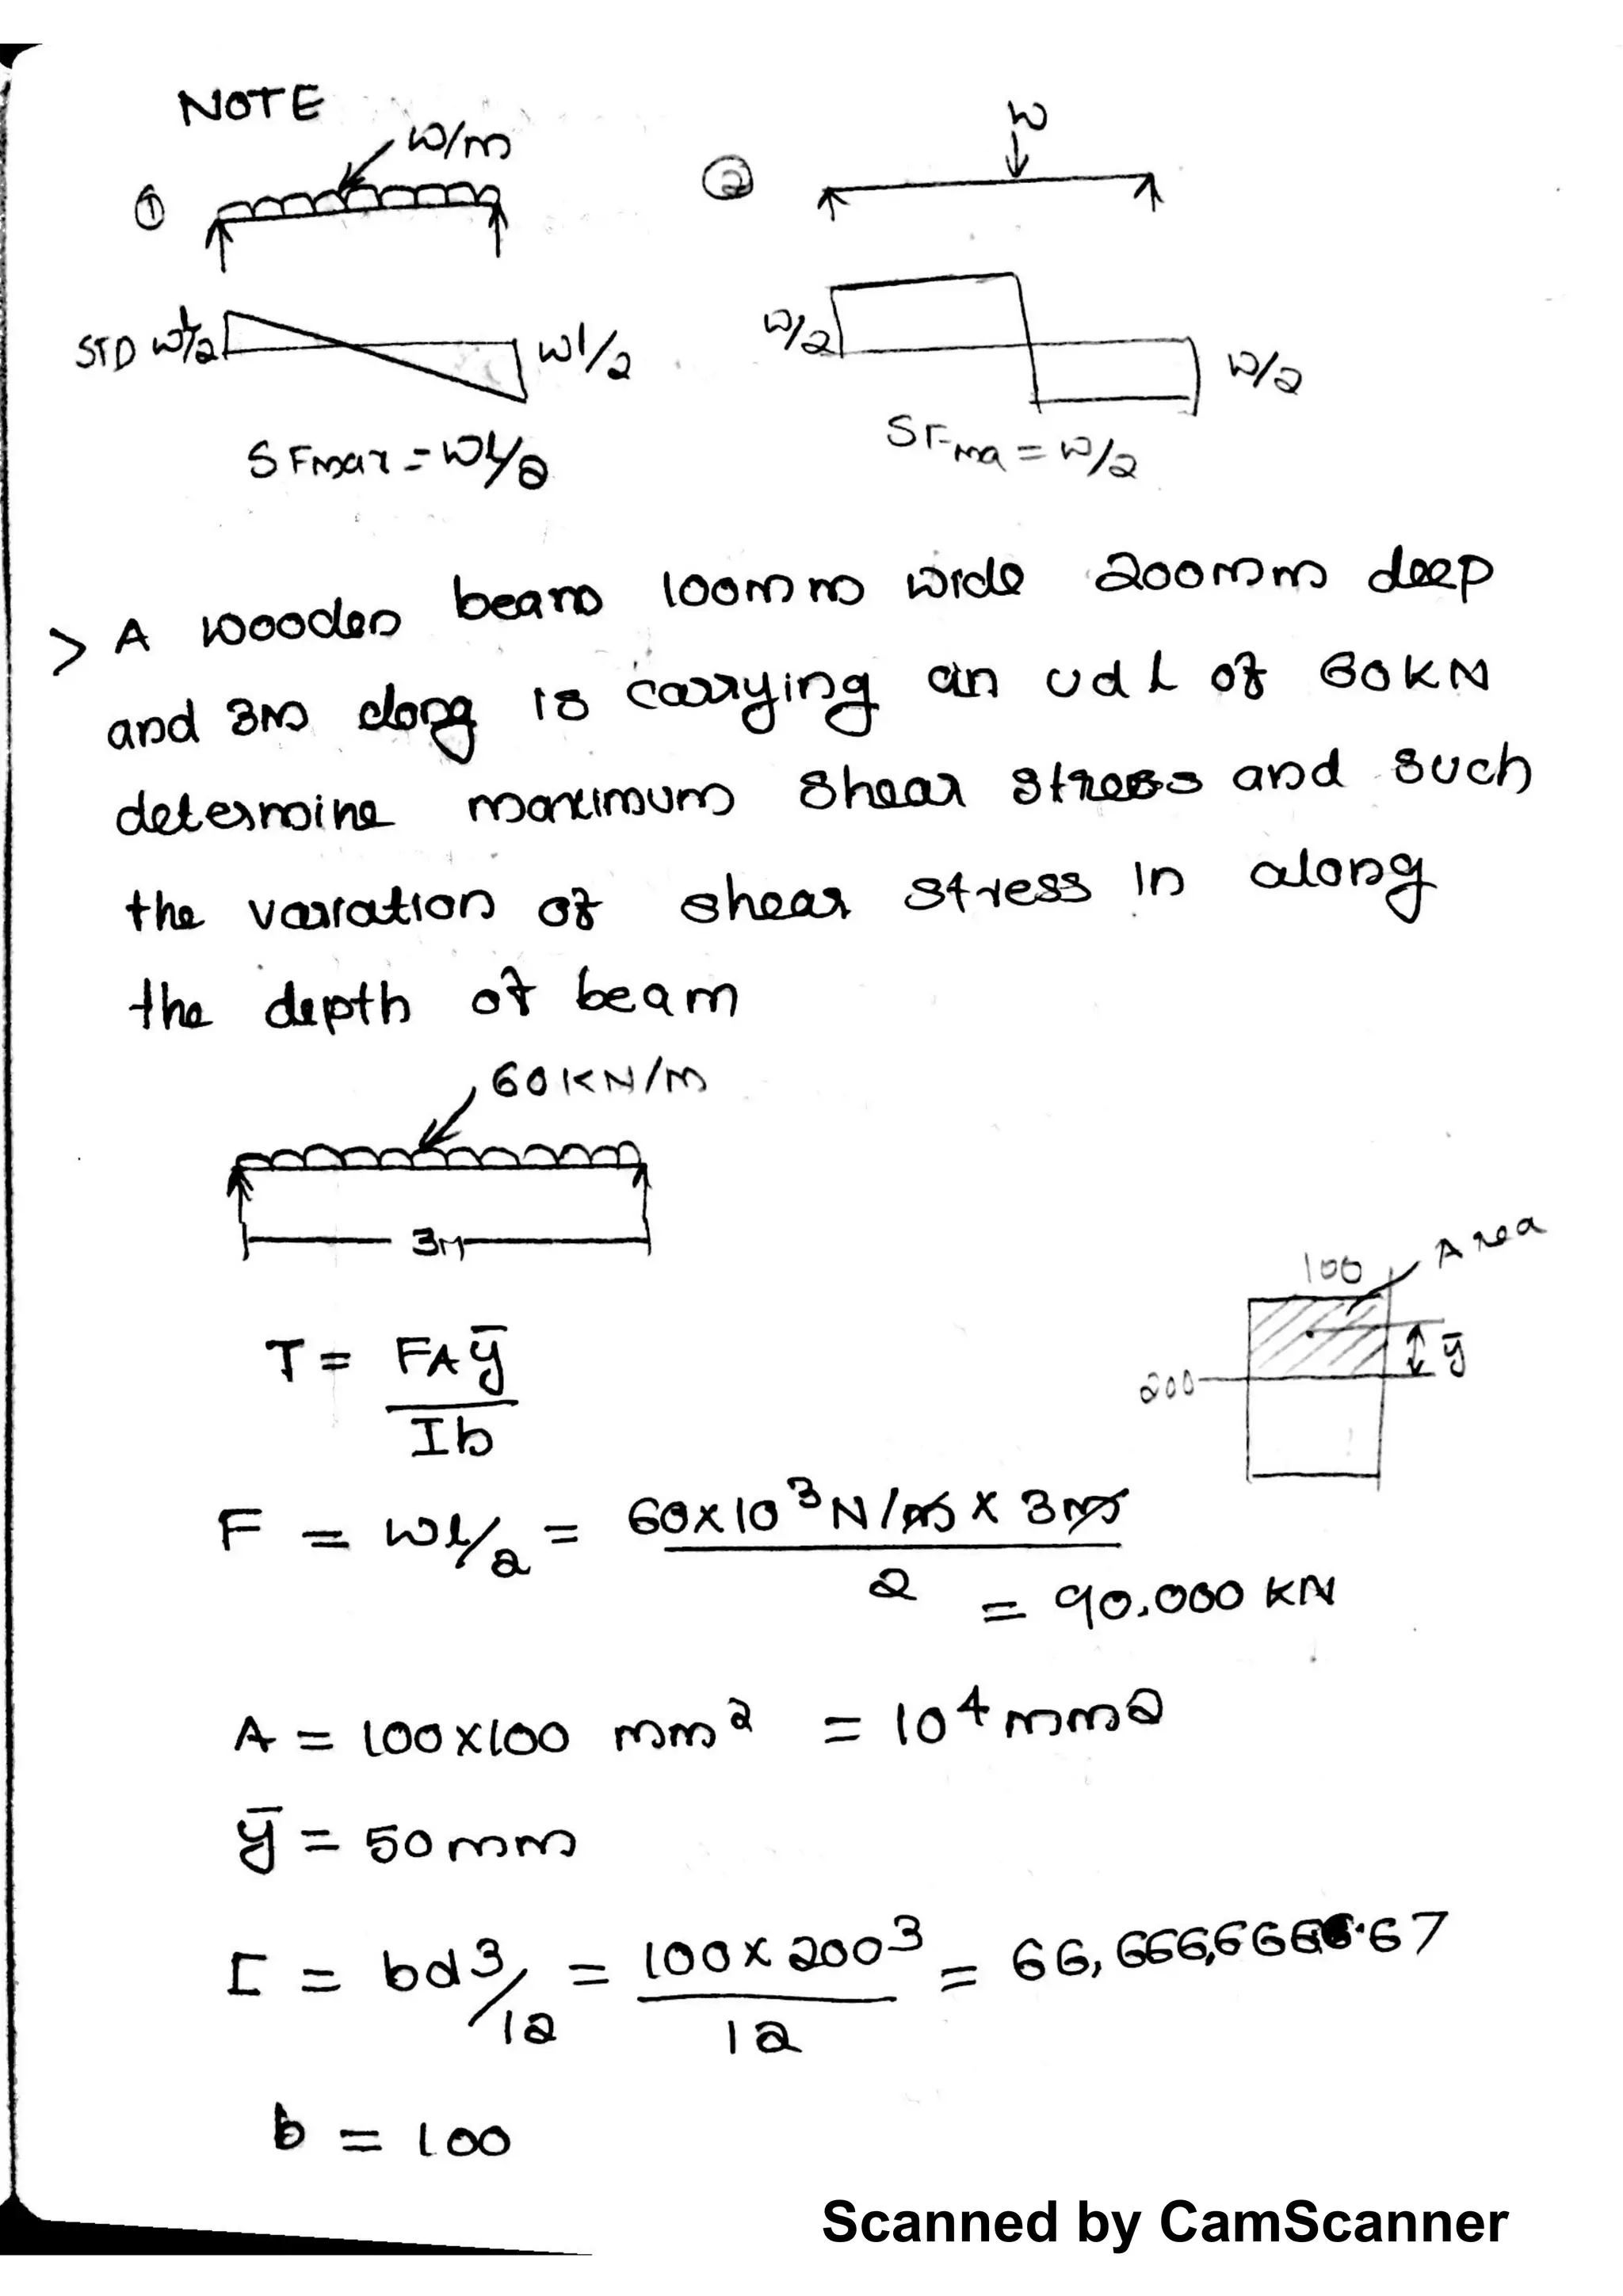 NOTE
① W/m
② W
STD wl/2 wl/2
W/2 W/2
SFmax = Wl/2
SFma = W/2
> A wooden beam 100mm wide 200mm deep
and 3m long is carrying an udl of 60KN
determine maximum shear stress and such
the variation of shear stress in along
the depth of beam
60KN/m
3M
100 Area
200 ȳ
T = FAȳ / Ib
F = wl/2 = 60x10³N/m x 3m / 2
= 90,000 KN
A = 100x100 mm² = 10⁴ mm2
ȳ = 50mm
I = bd³/12 = 100x200³ / 12 = 66,666,666.67
b = 100
Scanned by CamScanner